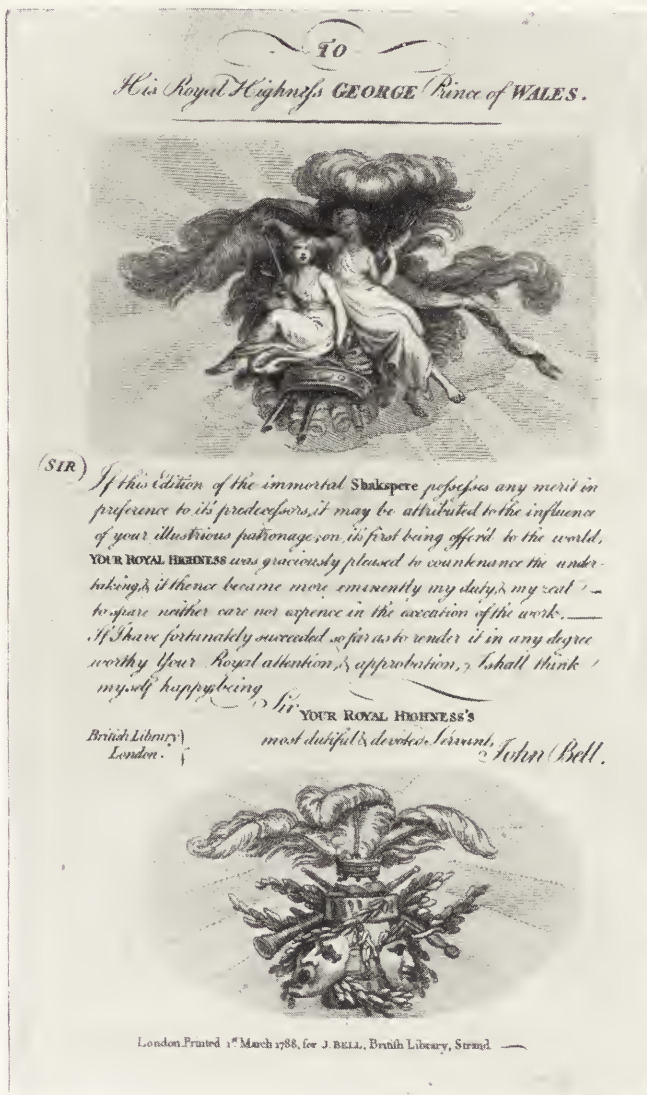 TO
His Royal Highneſs GEORGE Prince of WALES.
(SIR)
If this Edition of the immortal Shakspere poſseſses any merit in
preference to it's predeceſsors, it may be attributed to the influence
of your illustrious patronage; on it's first being offer'd to the world,
YOUR ROYAL HIGHNESS was graciously pleased to countenance the under-
taking, & it thence became more eminently my duty, & my zeal
to spare neither care nor expence in the execution of the work.
If I have fortunately succeeded so far as to render it in any degree
worthy Your Royal attention, & approbation, I shall think
myself happy, being
Sir
YOUR ROYAL HIGHNESS'S
most dutiful & devoted Servant,
British Library
London.
John Bell.
London Printed 1st March 1788, for J. BELL, Britiſh Library, Strand